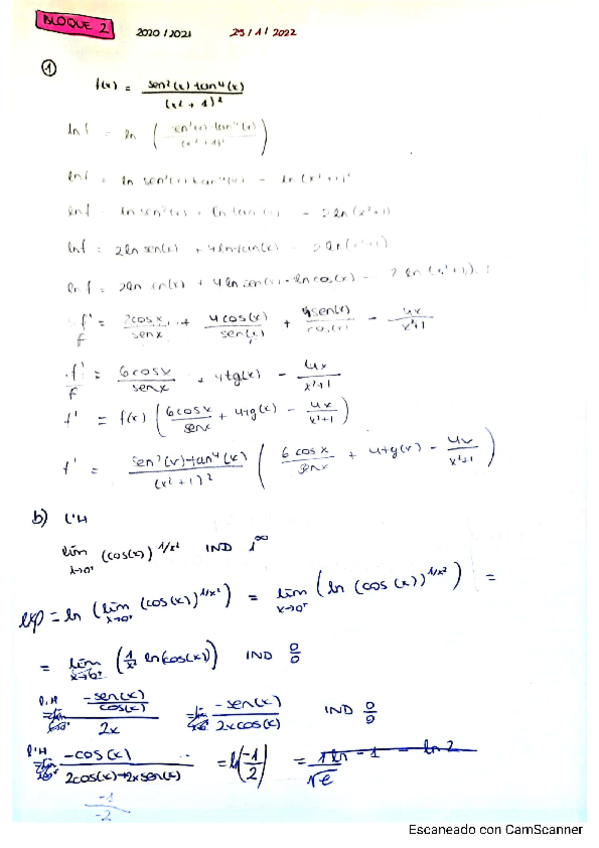 BLOQUE 2 2020/2021 25/1/2022
①
f(x) = sen²(x)·tan⁴(x) / (x²+1)²
ln f = ln ( sen²(x)·tan⁴(x) / (x²+1)² )
ln f = ln sen²(x)·tan⁴(x) - ln (x²+1)²
ln f = ln sen²(x) + ln tan⁴(x) - 2 ln(x²+1)
ln f = 2 ln sen(x) + 4 ln tan(x) - 2 ln(x²+1)
ln f = 2 ln sen(x) + 4 ln sen(x) - ln cos(x) - 2 ln(x²+1)
f'/f = 2cosx/senx + 4cos(x)/sen(x) + 4sen(x)/cos(x) - 4x/x²+1
f'/f = 6cosx/senx + 4tg(x) - 4x/x²+1
f' = f(x) ( 6cosx/senx + 4tg(x) - 4x/x²+1 )
f' = sen²(x)·tan⁴(x)/(x²+1)² ( 6cosx/senx + 4tg(x) - 4x/x²+1 )
b) L'H
lím x→0⁺ (cos(x))^1/x² IND 1^∞
exp = ln (lím x→0⁺ (cos(x))^1/x²) = lím x→0⁺ (ln (cos(x))^1/x²) =
= lím x→0⁺ (1/x² ln(cos(x))) IND 0/0
L'H = -sen(x)/cos(x) / 2x = -sen(x) / 2xcos(x) IND 0/0
L'H = -cos(x) / 2cos(x)-2xsen(x) = ln(-1/2) = 1 ln -1 - ln 2 / √e
-1 / -2
Escaneado con CamScanner